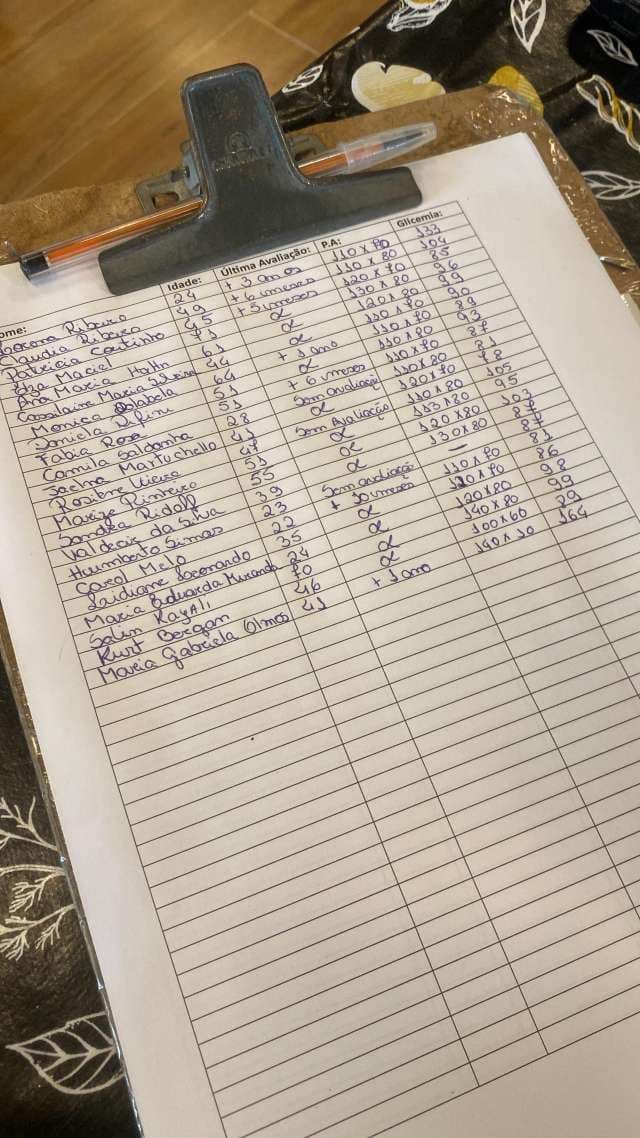 ome: Idade: Última Avaliação: P.A: Glicemia:
Ribeiro 24 + 3 anos 110 x 70 133
Claudia Ribeiro 49 + 6 meses 110 x 80 104
Patricia Coutinho 45 + 5 meses 120 x 70 85
Elza Maciel 71 α 130 x 80 96
Ana Maria Hahn 61 α 120 x 80 99
Maria Silveira 44 α 110 x 70 90
Monica Dalabela 64 + 1 ano 110 x 70 89
Daniela Rifini 51 α 110 x 80 93
Fabia Rosa 51 + 6 meses 110 x 70 87
Camila Saldanha 28 sem avaliação 110 x 80 81
Martuchello 41 α 120 x 70 78
Vieira 47 Sem Avaliação 110 x 80 105
Marize Pinheiro 51 α 113 x 80 95
Sandra Ridolf 55 α 120 x 80 103
Valdecir da Silva 39 α 130 x 80 87
Humberto Simas 23 sem avaliação — 87
Carol Melo 22 + 10 meses 110 x 70 81
35 α 120 x 70 86
Maria Eduarda Miranda 24 α 120 x 80 98
Selin Kayali 70 α 140 x 80 99
Kurt Bergan 46 α 100 x 60 29
Maria Gabriela Olmos 41 + 1 ano 164